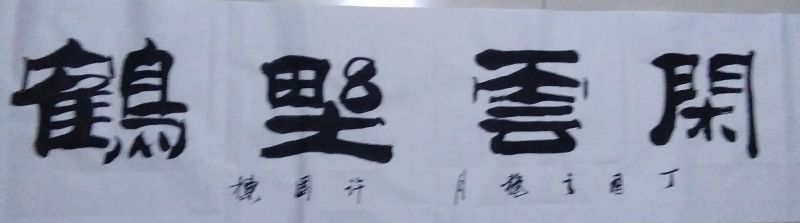 閑雲野鶴
丁酉秋月 许國棟